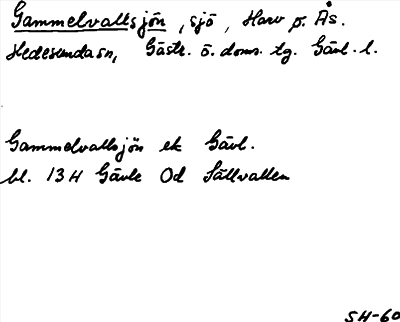 Gammelvallsjön, sjö, Harv p. Ås.
Hedesunda sn, Gästr. ö. doms. tg. Gävl. l.
Gammelvallsjön ek Gävl.
bl. 13 H Gävle Od Sällvallen
SH-60